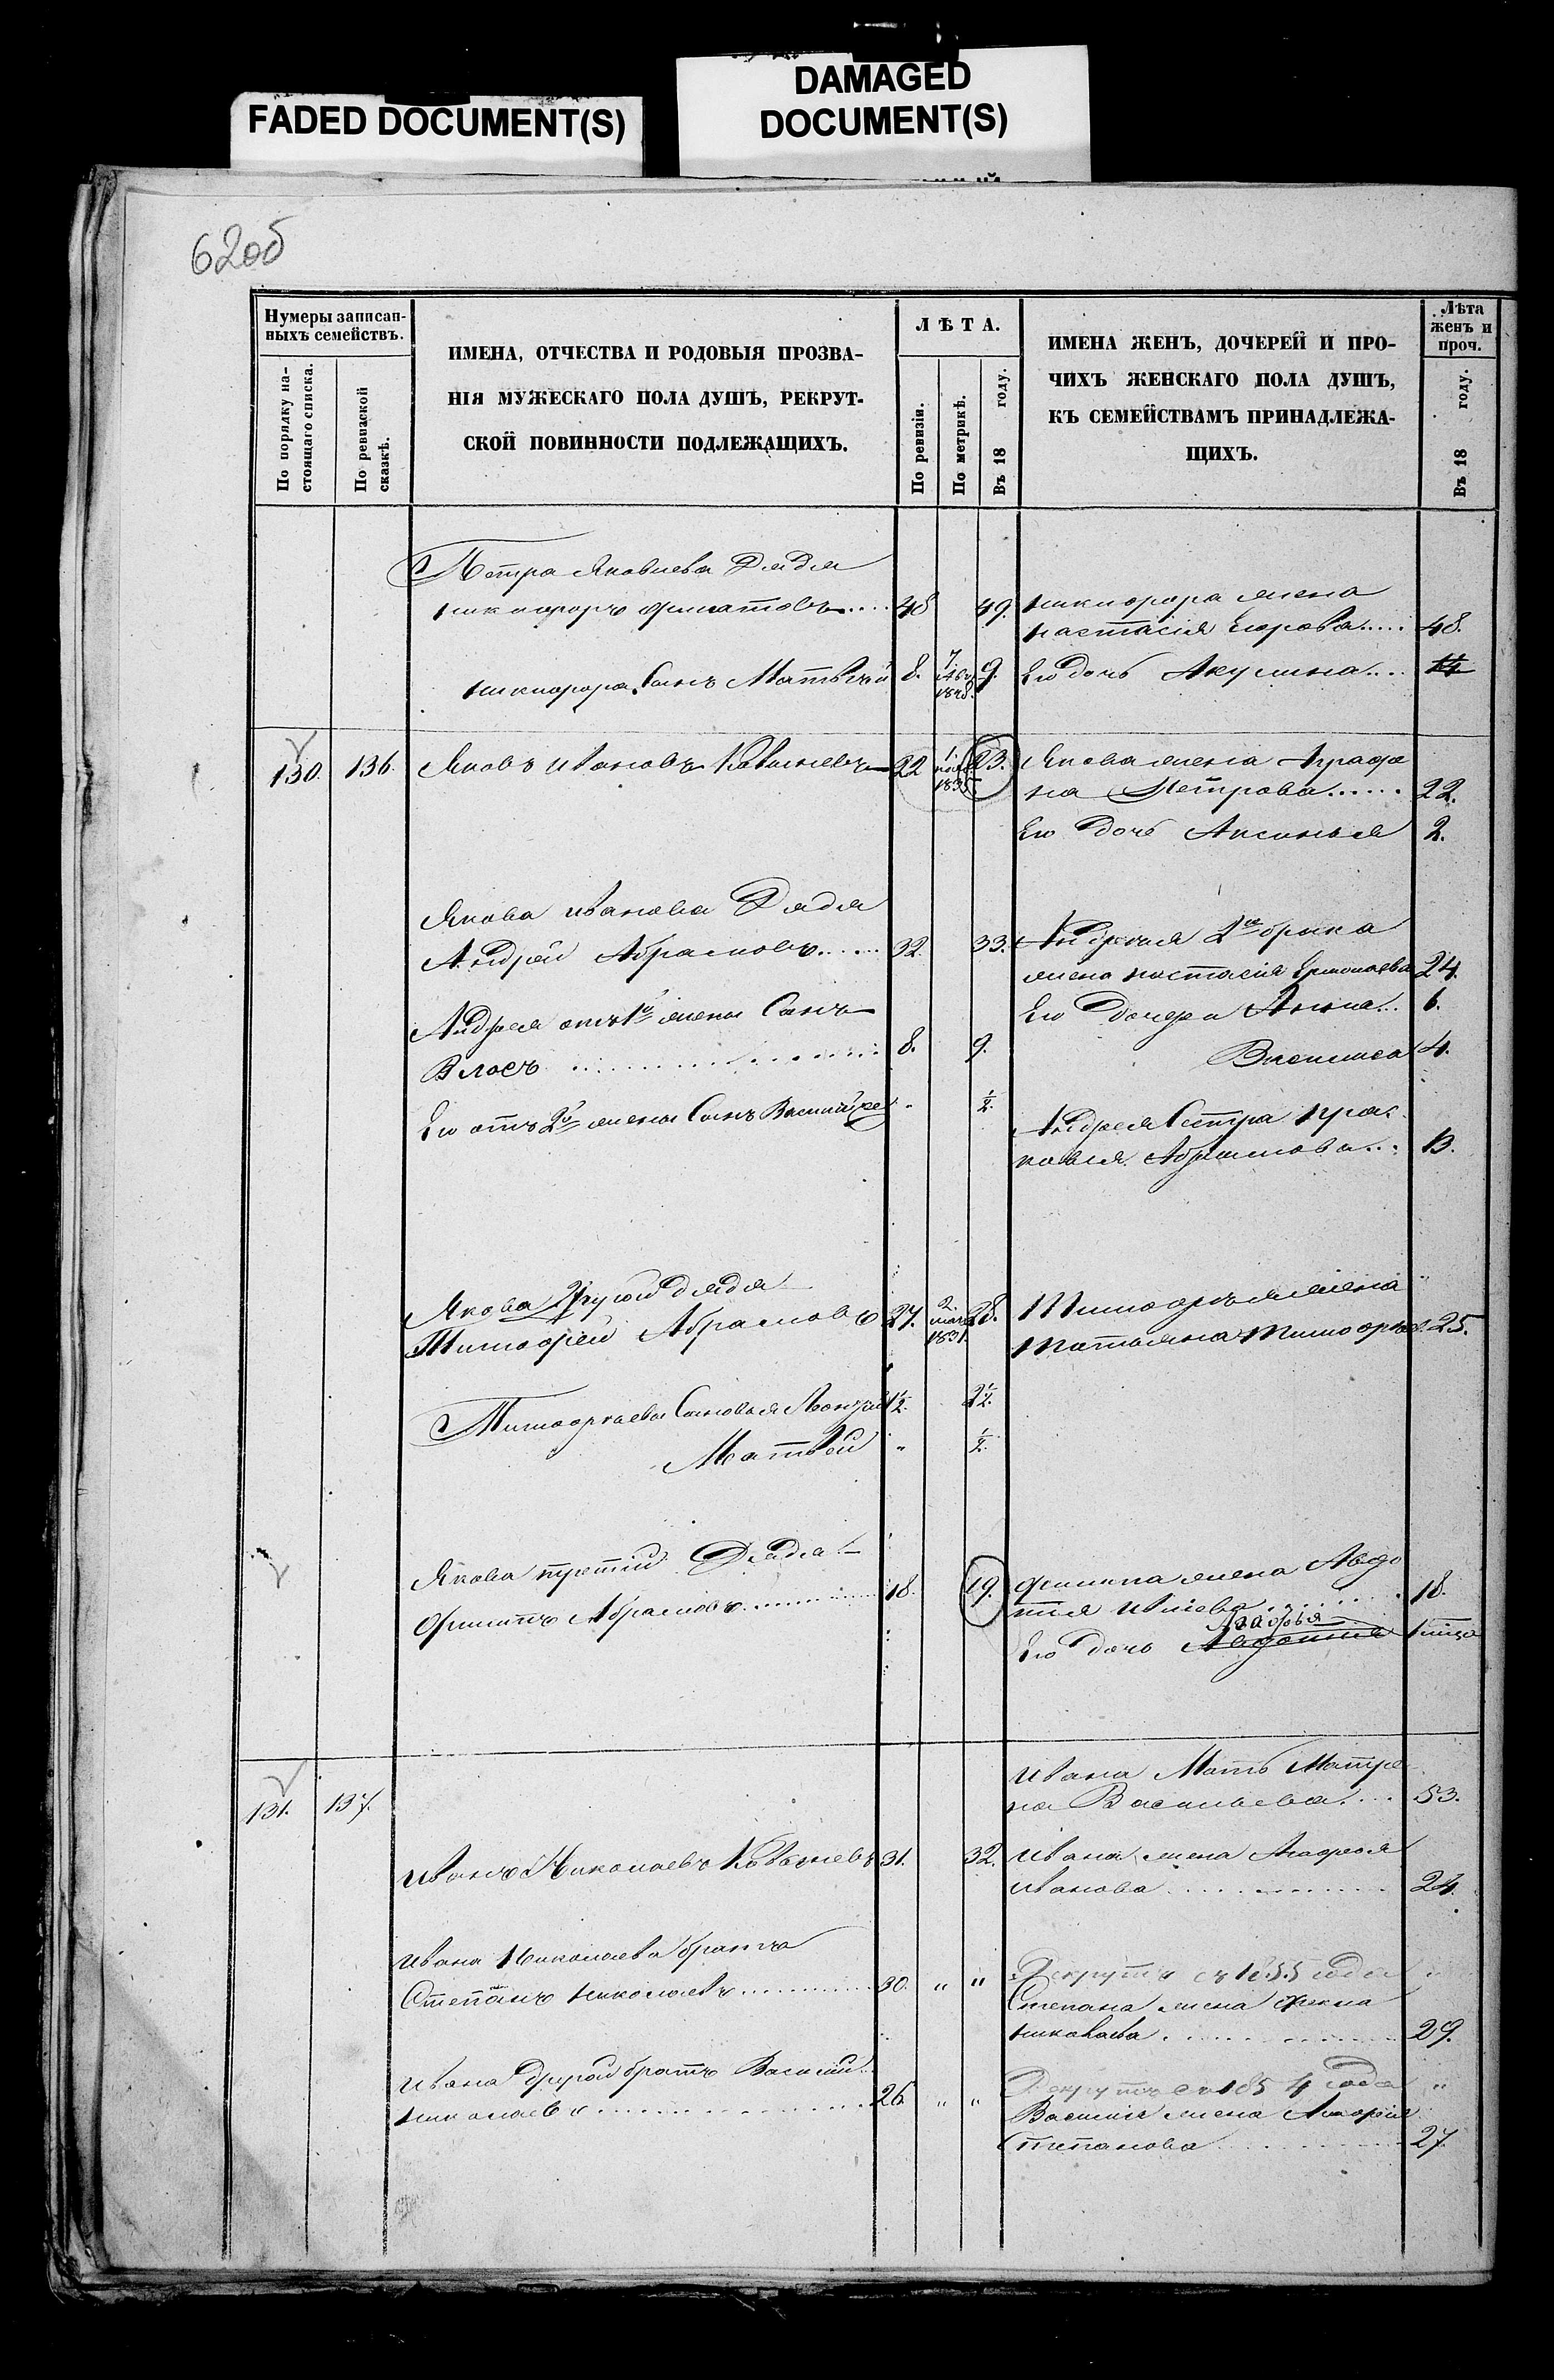 FADED DOCUMENT(S)
DAMAGED
DOCUMENT(S)
62об
Нумеры записан-
ныхъ семействъ.
По порядку на-
стоящаго списка.
По ревизской
сказкѣ.
ИМЕНА, ОТЧЕСТВА И РОДОВЫЯ ПРОЗВА-
НІЯ МУЖЕСКАГО ПОЛА ДУШЪ, РЕКРУТ-
СКОЙ ПОВИННОСТИ ПОДЛЕЖАЩИХЪ.
ЛѢТА.
По ревизіи.
По метрикѣ.
Въ 18 году.
ИМЕНА ЖЕНЪ, ДОЧЕРЕЙ И ПРО-
ЧИХЪ ЖЕНСКАГО ПОЛА ДУШЪ,
КЪ СЕМЕЙСТВАМЪ ПРИНАДЛЕЖА-
ЩИХЪ.
Лѣта
женъ и
проч.
Въ 18 году.
Петра Яковлева Дядя
Никифоръ Филатовъ.... 48 49.
Никифора жена
Настасія Егорова..... 48.
Никифора Сынъ Матвѣй 8. 1848. 9.
Его дочь Акулина....
130. 136. Яковъ Ивановъ 22 1. 23.
Якова жена Аграфе
на Петрова...... 22.
Его дочь Аксинья 2.
Якова Иванова Дядя
Андрей Абрамовъ...... 32. 33.
Андрея 2го брака
жена Настасія Ермолаева 24.
Андрея отъ 1й жены Сынъ
Власъ 8. 9.
Его дочери Анна... 6.
Василиса 4.
Его отъ 2й жены Сынъ Василій " ½.
Андрея Сестра Прас
ковья Абрамова... 13.
Якова Другой дядя
Тимофей Абрамовъ 27. 2. 1831. 28.
Тимофея жена
Татьяна 25.
Тимофеевы Сыновья 1½. 2½.
Матвѣй " ½.
Якова третій Дядя
Филипъ Абрамовъ 18. 19.
Филипа жена Авдо
тья 18.
Его дочь
131. 137.
Ивана Мать Матре
на Васильева.... 53.
Иванъ Николаевъ 31. 32.
Ивана жена Агафья
Иванова 24.
Ивана Николаева братъ
Степанъ Николаевъ 30. " "
Рекрутъ съ 1855 года
Степана жена Фекла
29.
Ивана Другой братъ Василій
Николаевъ 26. " "
Рекрутъ съ 1854 года "
Василія жена
Степанова 27.